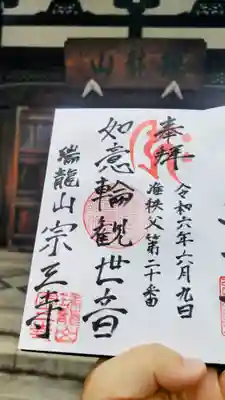 奉拝
令和六年六月九日
准秩父第二十番
如意輪観世音
瑞龍山宗三寺